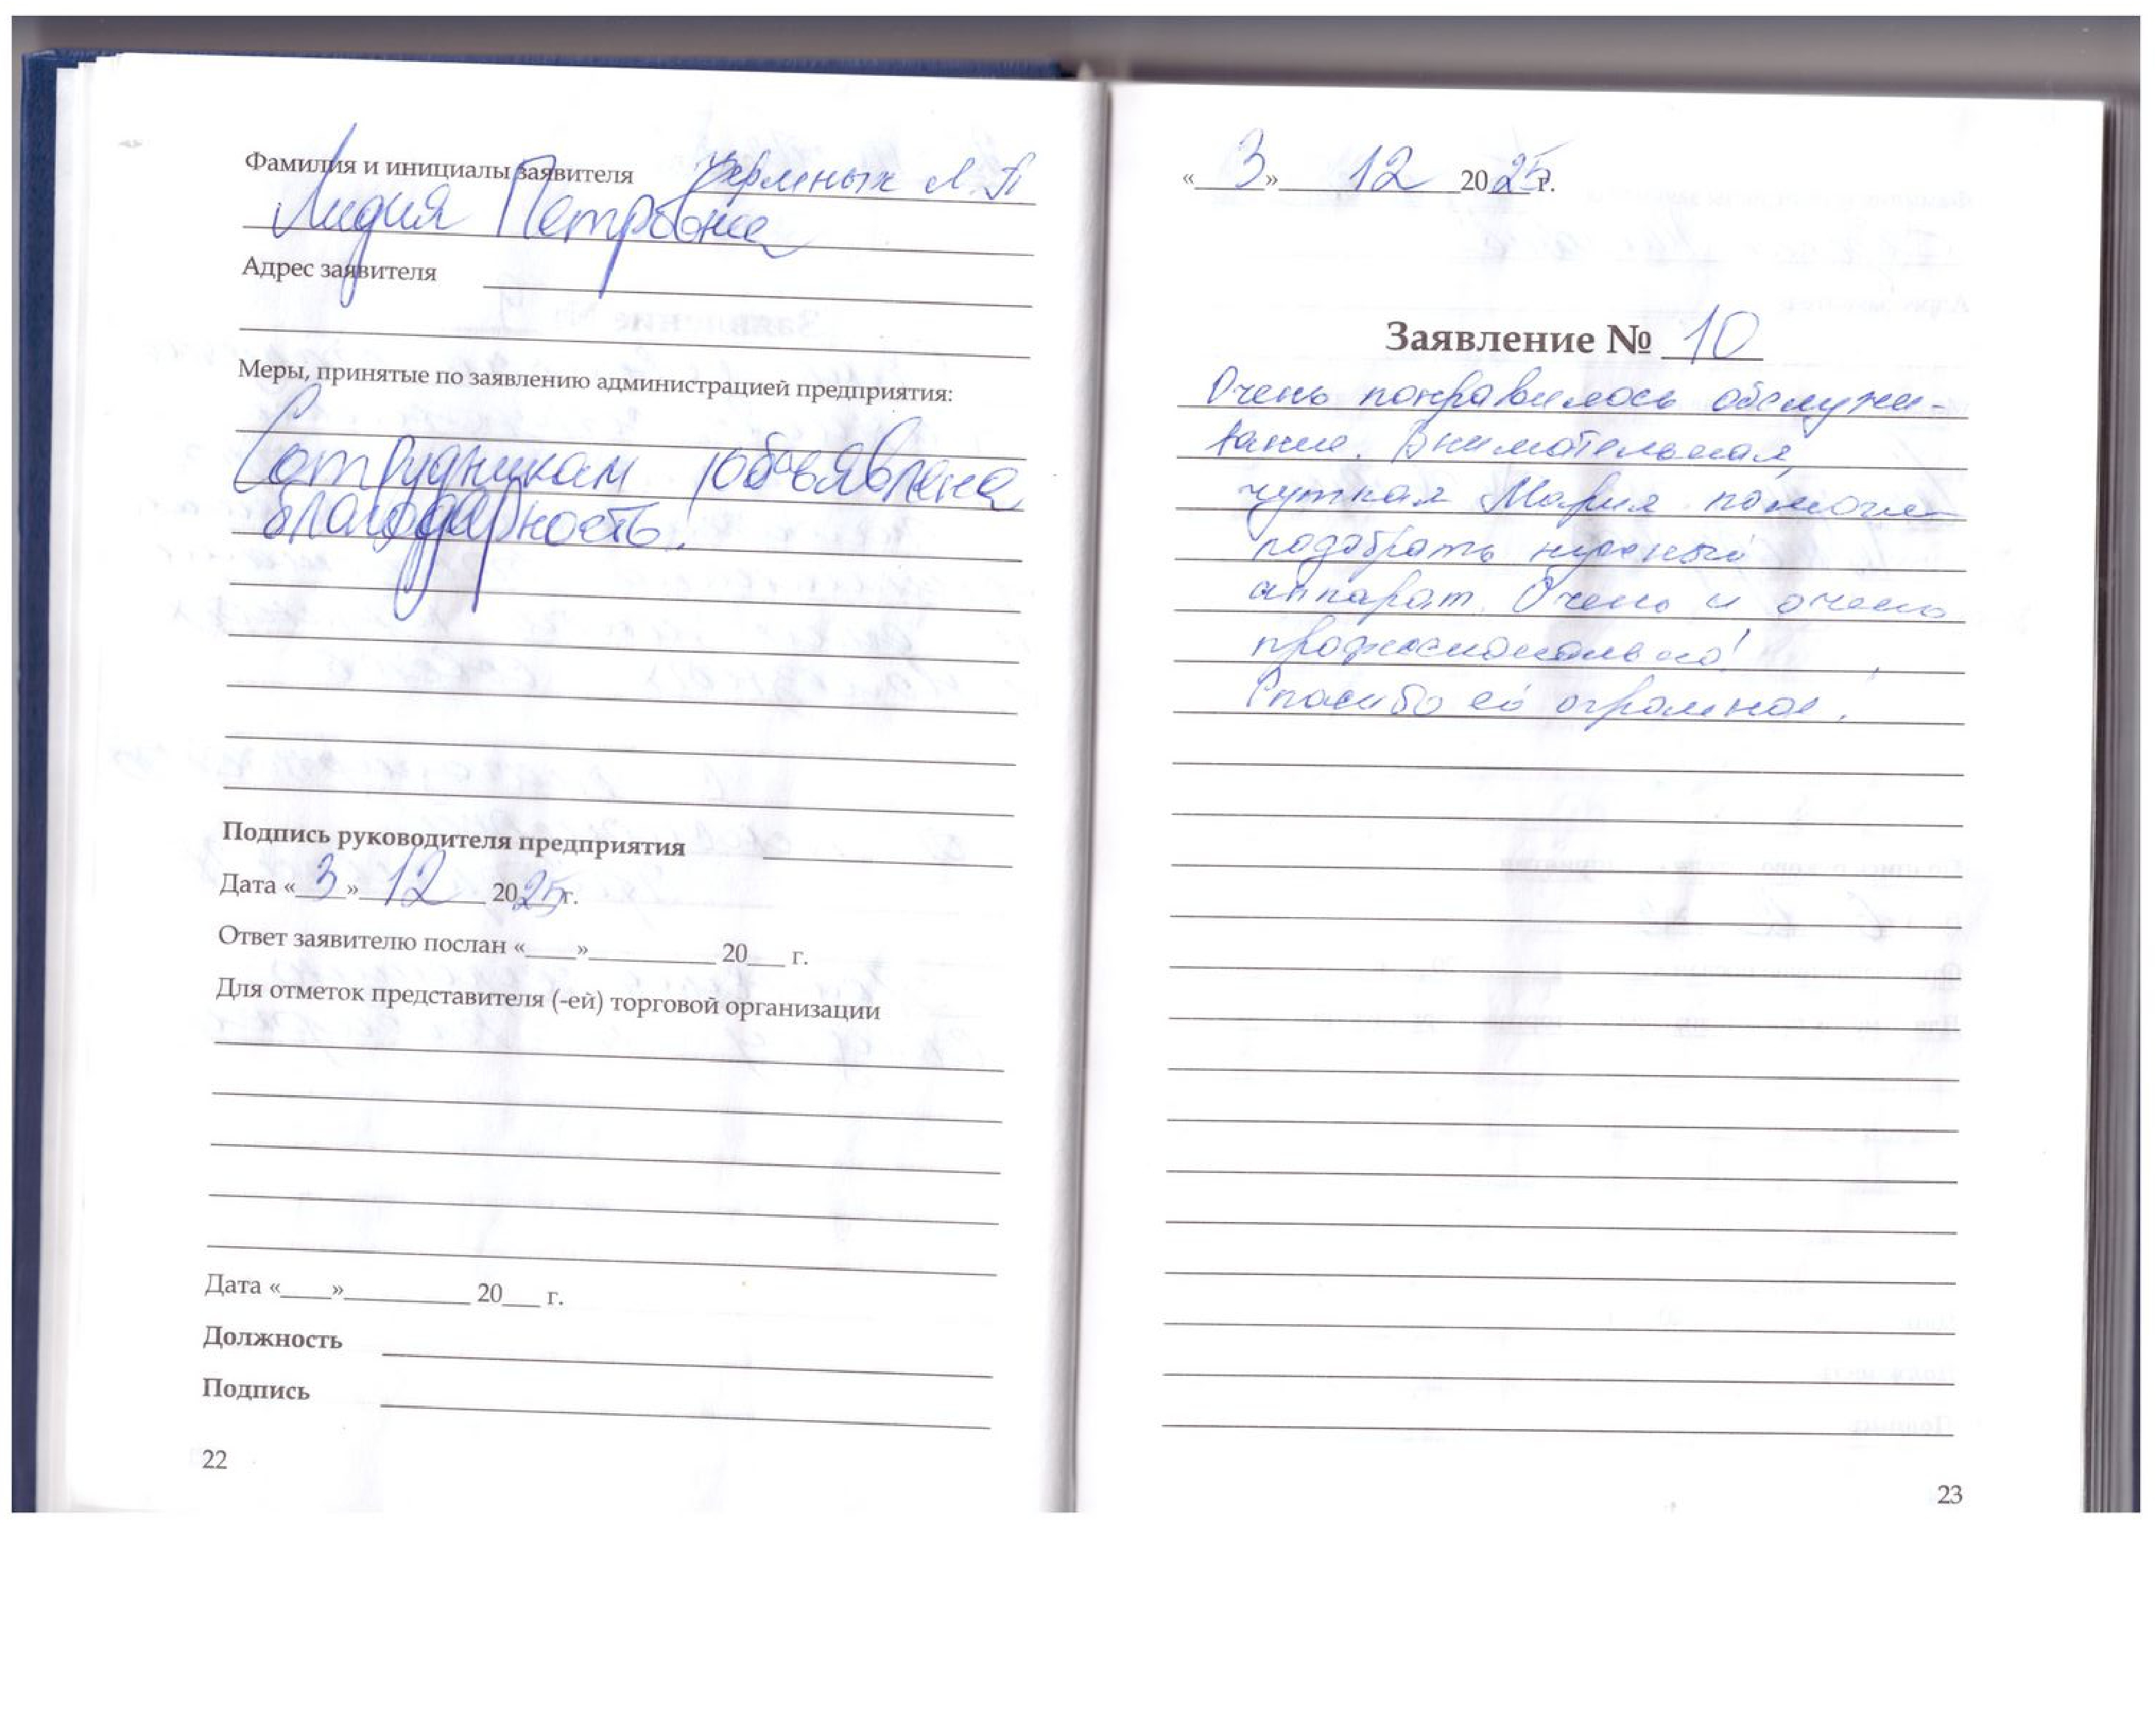 Фамилия и инициалы заявителя Черемных Л.П
Лидия Петровна
Адрес заявителя
Меры, принятые по заявлению администрацией предприятия:
Сотрудникам объявлена
благодарность.
Подпись руководителя предприятия
Дата «3» 12 2025 г.
Ответ заявителю послан «____»__________ 20___ г.
Для отметок представителя (-ей) торговой организации
Дата «____»__________ 20___ г.
Должность
Подпись
22
«3» 12 2025 г.
Заявление № 10
Очень понравилось обслужи-
вание. Внимательная,
чуткая Мария помогла
подобрать нужный
аппарат. Очень и очень
профессионально!
Спасибо ей огромное.
23